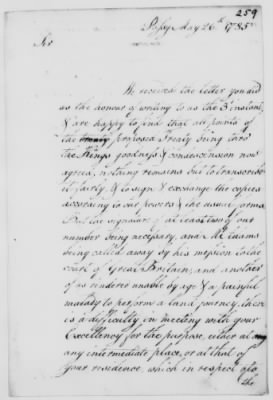 259
Passy May 26th. 1785
Sir
We received the letter you did
us the honour of writing to us the 3d instant,
& are happy to find that all points of
the treaty proposed Treaty being thro'
the Kings goodness & condescension now
agreed, nothing remains but to transcribe
it fairly, & to sign & exchange the copies
according to our powers & the usual forms.
But the signature of at least two of our
number being necessary, and Mr. Adams
being called away by his mission to the
court of Great Britain, and another
of us rendered unable by age & a painful
malady to perform a land journey, there
is a difficulty in meeting with your
Excellency for the purpose, either at any
any intermediate place, or at that of
your residence, which in respect to
the